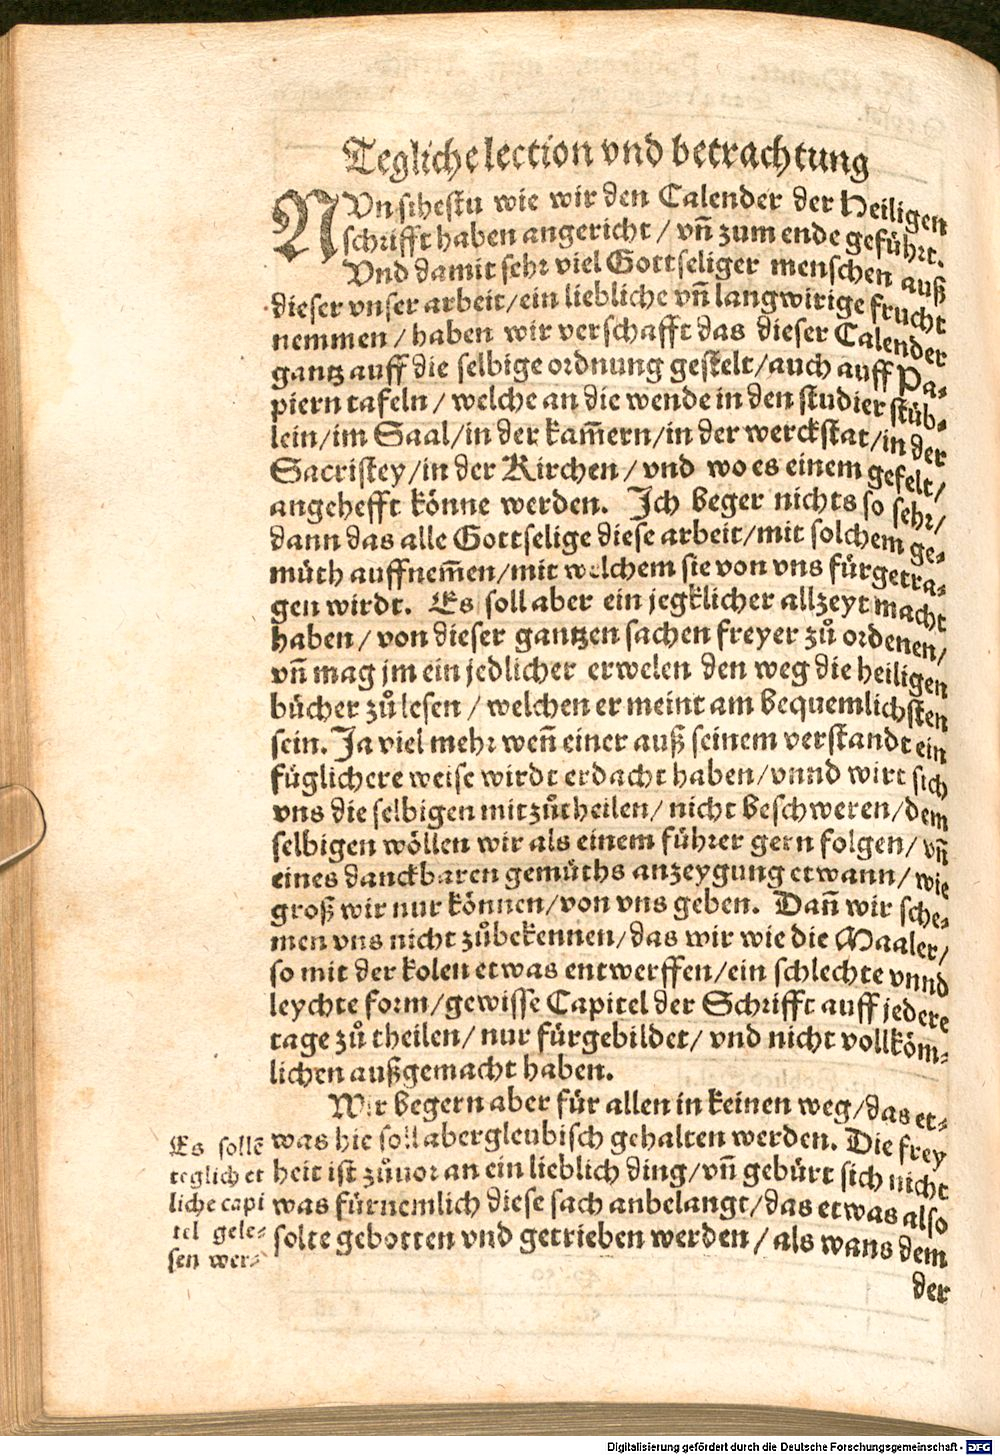 Tegliche lection vnd betrachtung
NVn sihestu wie wir den Calender der Heiligen
schrifft haben angericht / vñ zum ende geführt.
Vnd damit sehr viel Gottseliger menschen auß
dieser vnser arbeit/ein liebliche vñ langwirige frucht
nemmen / haben wir verschafft das dieser Calender
gantz auff die selbige ordnung gestelt/auch auff Pa-
piern tafeln / welche an die wende in den studier stüb-
lein/im Saal/in der kam̃ern/in der werckstat/in der
Sacristey/in der Kirchen / vnd wo es einem gefelt/
angehefft könne werden. Ich beger nichts so sehr/
dann das alle Gottselige diese arbeit/mit solchem ge-
müth auffnem̃en/mit welchem sie von vns fürgetra-
gen wirdt. Es soll aber ein jegklicher allzeyt macht
haben / von dieser gantzen sachen freyer zů ordenen/
vñ mag jm ein jedlicher erwelen den weg die heiligen
bücher zů lesen / welchen er meint am bequemlichsten
sein. Ja viel mehr weñ einer auß seinem verstandt ein
füglichere weise wirdt erdacht haben/vnnd wirt sich
vns die selbigen mitzůtheilen/ nicht beschweren/dem
selbigen wöllen wir als einem führer gern folgen/ vñ
eines danckbaren gemüths anzeygung etwann/ wie
groß wir nur können/von vns geben. Dañ wir sche-
men vns nicht zůbekennen/das wir wie die Maaler/
so mit der kolen etwas entwerffen/ein schlechte vnnd
leychte form/gewisse Capitel der Schrifft auff jedere
tage zů theilen/ nur fürgebildet/ vnd nicht vollköm-
lichen außgemacht haben.
Wir begern aber für allen in keinen weg/das et-
was hie soll abergleubisch gehalten werden. Die frey
heit ist zůuor an ein lieblich ding/vñ gebürt sich nicht
was fürnemlich diese sach anbelangt/das etwas also
solte gebotten vnd getrieben werden / als wans dem
der
Es sollē
teglich et
liche capi
tel gele-
sen wer-
Digitalisierung gefördert durch die Deutsche Forschungsgemeinschaft - DFG